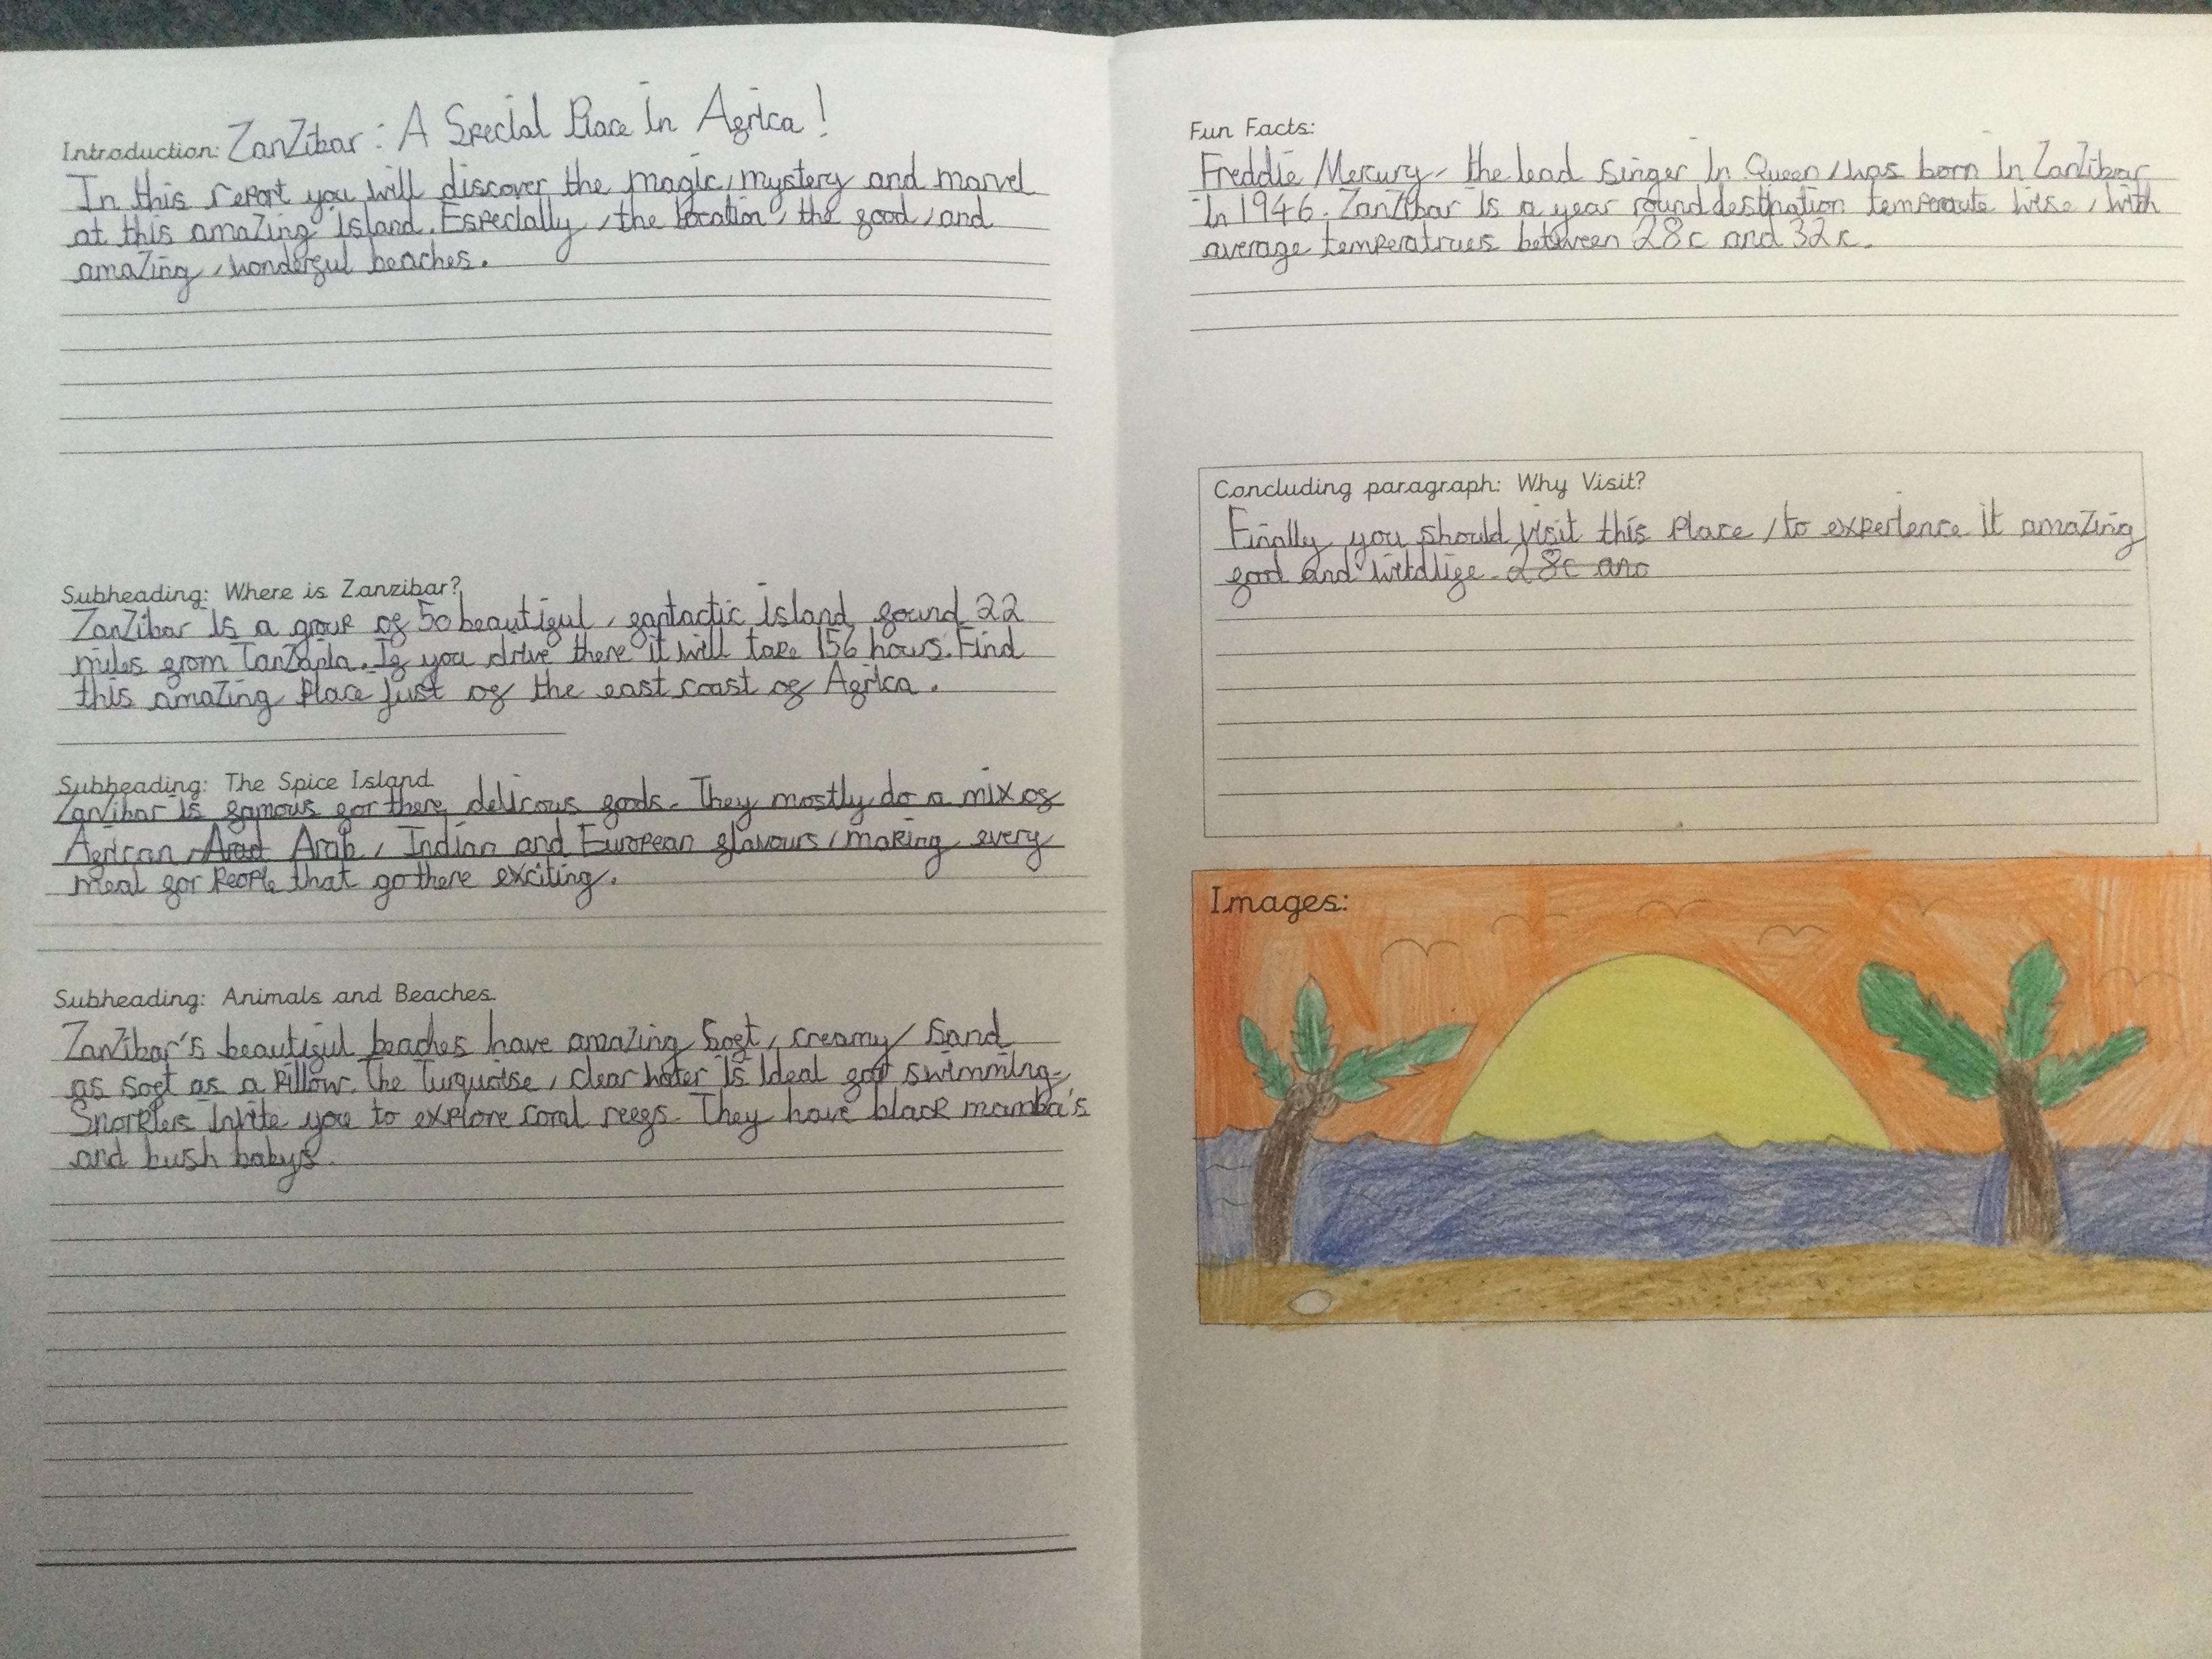 Introduction: ZanZibar: A Special Place In Africa!
In this report you will discover the magic, mystery and marvel
at this amaZing island. Especially, the location, the food, and
amaZing, wonderful beaches.
Subheading: Where is Zanzibar?
ZanZibar is a group of 50 beautiful, fantactic island found 22
miles from TanZania. If you drive there it will take 156 hours. Find
this amaZing Place just of the east coast of Africa.
Subheading: The Spice Island
ZanZibar is famous for there delicous foods. They mostly do a mix of
African, Arad Arab, Indian and European flavours, making every
meal for People that go there exciting.
Subheading: Animals and Beaches.
ZanZibar's beautiful beaches have amaZing Soft, creamy, Sand
as soft as a Pillow. The Turquoise, clear water is ideal for swimming.
Snorklers invite you to explore coral reefs. They have black mamba's
and bush babys.
Fun Facts:
Freddie Mercury- the lead singer in Queen, was born in ZanZibar
in 1946. ZanZibar is a year round destination temperaute wise, with
average temperatrues between 28c and 32c.
Concluding paragraph: Why Visit?
Finally you should visit this Place, to experience it amaZing
food and wildlife. 28c and
Images: